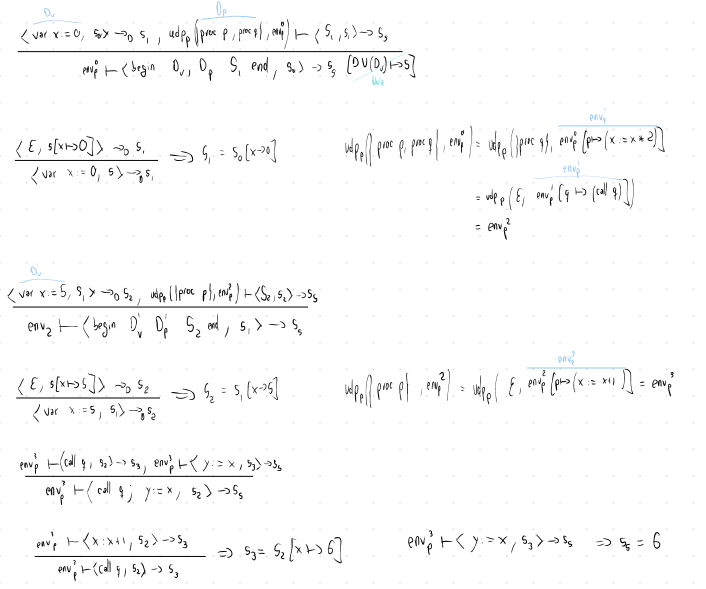 D_v D_p
⟨var x := 0, s_0⟩ →_D s_1 , udp_p({proc p, proc q}, env_p^0) ⊢ ⟨S_1, s_1⟩ → s_5
env_p^0 ⊢ ⟨begin D_v, D_p S_1 end, s_0⟩ → s_5 [DV(D_v) ↦ s]
⟨ε, s[x↦0]⟩ →_D s_1 ⟹ s_1 = s_0[x→0]
⟨var x := 0, s⟩ →_D s_1
env_p^1
udp_p({proc p, proc q}, env_p^0) = udp_p({proc q}, env_p^0[p↦(x := x*2)])
env_p^1
= udp_p(ε, env_p^1[q ↦ (call q)])
= env_p^2
D_v'
⟨var x := 5, s_1⟩ →_D s_2 , udp_p({proc p}, env_p^2) ⊢ ⟨S_2, s_2⟩ → s_5
env_2 ⊢ ⟨begin D_v' D_p' S_2 end, s_1⟩ → s_5
⟨ε, s[x↦5]⟩ →_D s_2 ⟹ s_2 = s_1[x→5]
⟨var x := 5, s_1⟩ →_D s_2
env_p^3
udp_p({proc p}, env_p^2) = udp_p(ε, env_p^2[p↦(x := x+1)]) = env_p^3
env_p^3 ⊢ ⟨call q, s_2⟩ → s_3, env_p^3 ⊢ ⟨y := x, s_3⟩ → s_5
env_p^3 ⊢ ⟨call q; y := x, s_2⟩ → s_5
env_p^1 ⊢ ⟨x: x+1, s_2⟩ → s_3 ⟹ s_3 = s_2[x↦6]
env_p^3 ⊢ ⟨call q, s_2⟩ → s_3
env_p^3 ⊢ ⟨y := x, s_3⟩ → s_5 ⟹ s_5 = 6